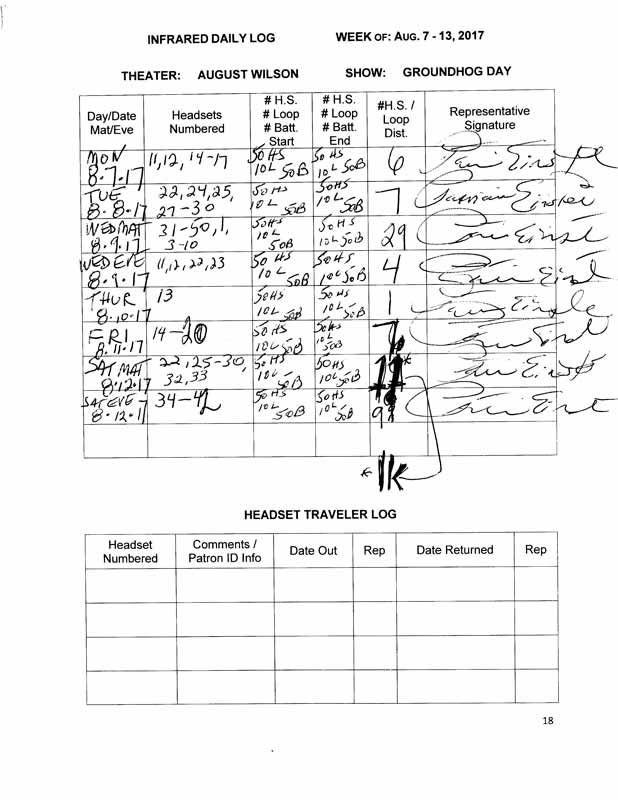 INFRARED DAILY LOG WEEK OF: AUG. 7 - 13, 2017
THEATER: AUGUST WILSON SHOW: GROUNDHOG DAY
Day/Date Mat/Eve Headsets Numbered # H.S. # Loop # Batt. Start # H.S. # Loop # Batt. End #H.S. / Loop Dist. Representative Signature
MON 8.7.17 11,12, 14-17 50 HS 10L 50B 50 HS 10L 50B 6
TUE 8.8.17 22,24,25, 27-30 50 HS 10L 50B 50HS 10L 50B 7
WED MAT 8.9.17 31-50,1, 3-10 50HS 10L 50B 50HS 10L 50B 29
WED EVE 8.9.17 11,12,22,23 50 HS 10L 50B 50HS 10L 50B 4
THUR 8.10.17 13 50HS 10L 50B 50 HS 10L 50B 1
FRI 8.11.17 14-20 50 HS 10L 50B 50HS 10L 50B 7
SAT MAT 8.12.17 22,25-30, 32,33 50HS 10L 50B 50HS 10L 50B
SAT EVE 8.12.17 34-42 50HS 10L 50B 50HS 10L 50B 9
HEADSET TRAVELER LOG
Headset Numbered Comments / Patron ID Info Date Out Rep Date Returned Rep
18